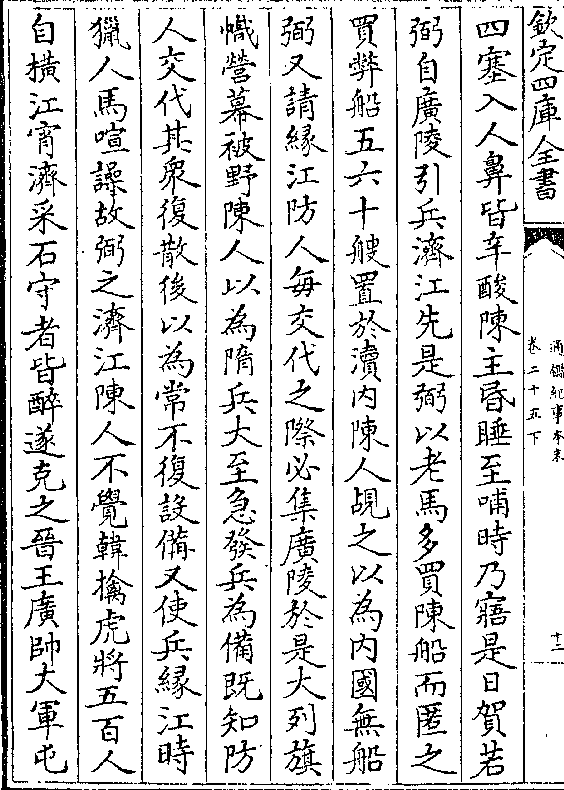 欽定四庫全書
通鑑紀事本末
卷二十五下
十二
四塞入人鼻皆辛酸陳主昏睡至晡時乃寤是日賀若
弼自廣陵引兵濟江先是弼以老馬多買陳船而匿之
買弊船五六十艘置於瀆内陳人覘之以為内國無船
弼又請緣江防人每交代之際必集廣陵於是大列旗
幟營幕被野陳人以為隋兵大至急發兵為備既知防
人交代其衆復散後以為常不復設備又使兵緣江時
獵人馬喧譟故弼之濟江陳人不覺韓擒虎將五百人
自横江宵濟采石守者皆醉遂克之晉王廣帥大軍屯